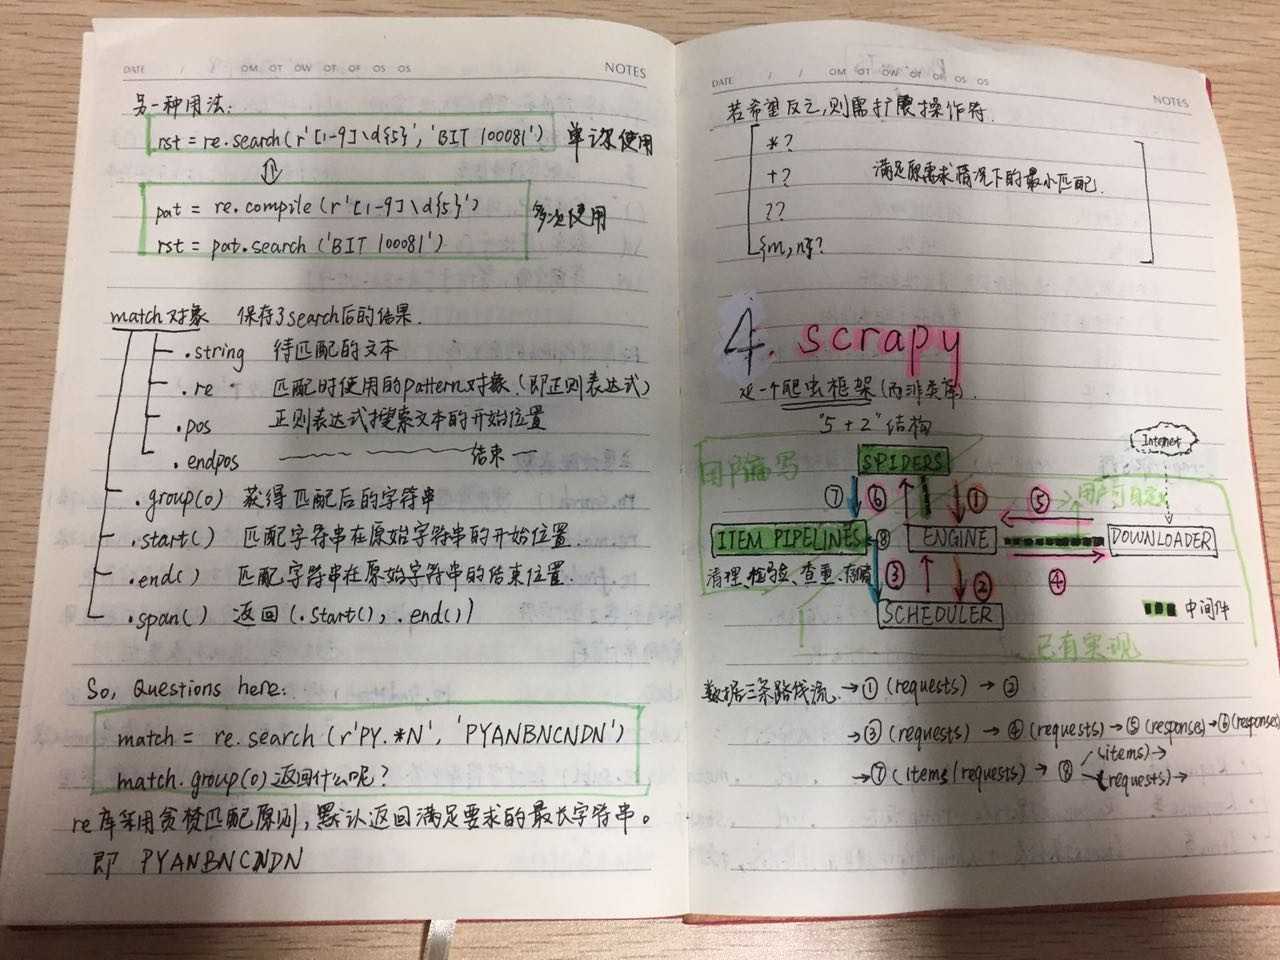 DATE / / OM OT OW OT OF OS OS NOTES
另一种用法:
rst = re.search(r'[1-9]\d{5}', 'BIT 100081') 单次使用
⇕
pat = re.compile(r'[1-9]\d{5}')
rst = pat.search('BIT 100081')
多次使用
match对象 保存了search后的结果.
.string 待匹配的文本
.re 匹配时使用的pattern对象(即正则表达式)
.pos 正则表达式搜索文本的开始位置
.endpos ———————结束—
.group(0) 获得匹配后的字符串
.start() 匹配字符串在原始字符串的开始位置.
.end() 匹配字符串在原始字符串的结束位置.
.span() 返回(.start(), .end())
So, Questions here:
match = re.search(r'PY.*N', 'PYANBNCNDN')
match.group(0)返回什么呢?
re库采用贪婪匹配原则,默认返回满足要求的最长字符串。
即 PYANBNCNDN
DATE / / OM OT OW OT OF OS OS NOTES
若希望反之,则需扩展操作符.
*?
+?
??
{m,n}?
满足原需求情况下的最小匹配.
4. scrapy
是一个爬虫框架(而非类库).
"5+2"结构
Internet
用户编写
SPIDERS
⑦ ⑥ ① ⑤
用户可自定义
ITEM PIPELINES ⑧ ENGINE DOWNLOADER
清理、检验、查重、存储
③ ② ④
SCHEDULER
中间件
已有实现
数据三条路线流. →①(requests)→②
→③(requests)→④(requests)→⑤(responses)→⑥(responses)
→⑦(items/requests)→⑧
(items)→
(requests)→